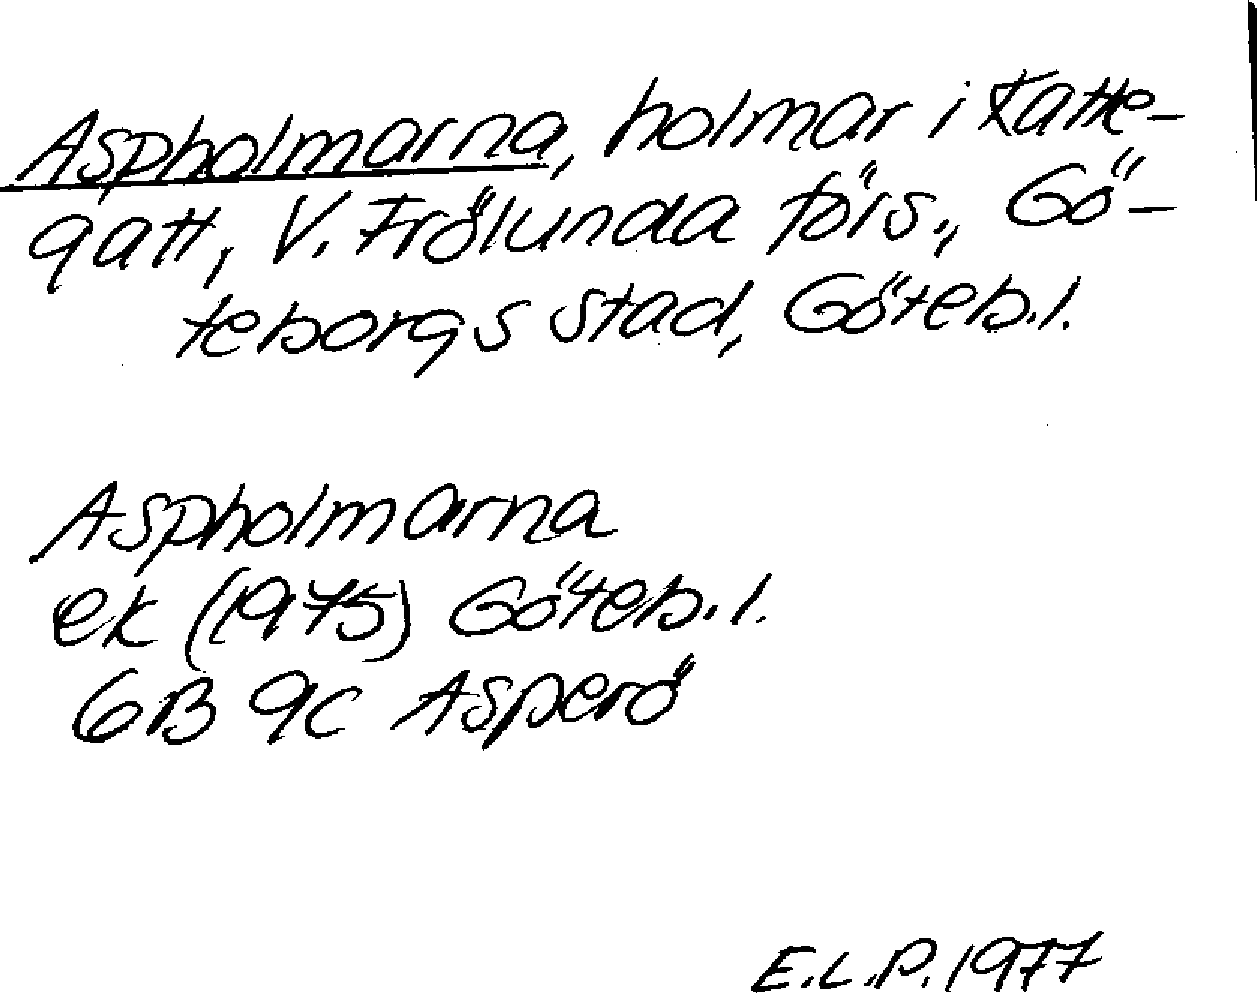 Aspholmarna, holmar i Katte-
gatt, V. Frölunda förs., Gö-
teborgs stad, Göteb.l.
Aspholmarna
ek (1975) Göteb.l.
6B 9c Asperö
E.L.P. 1977